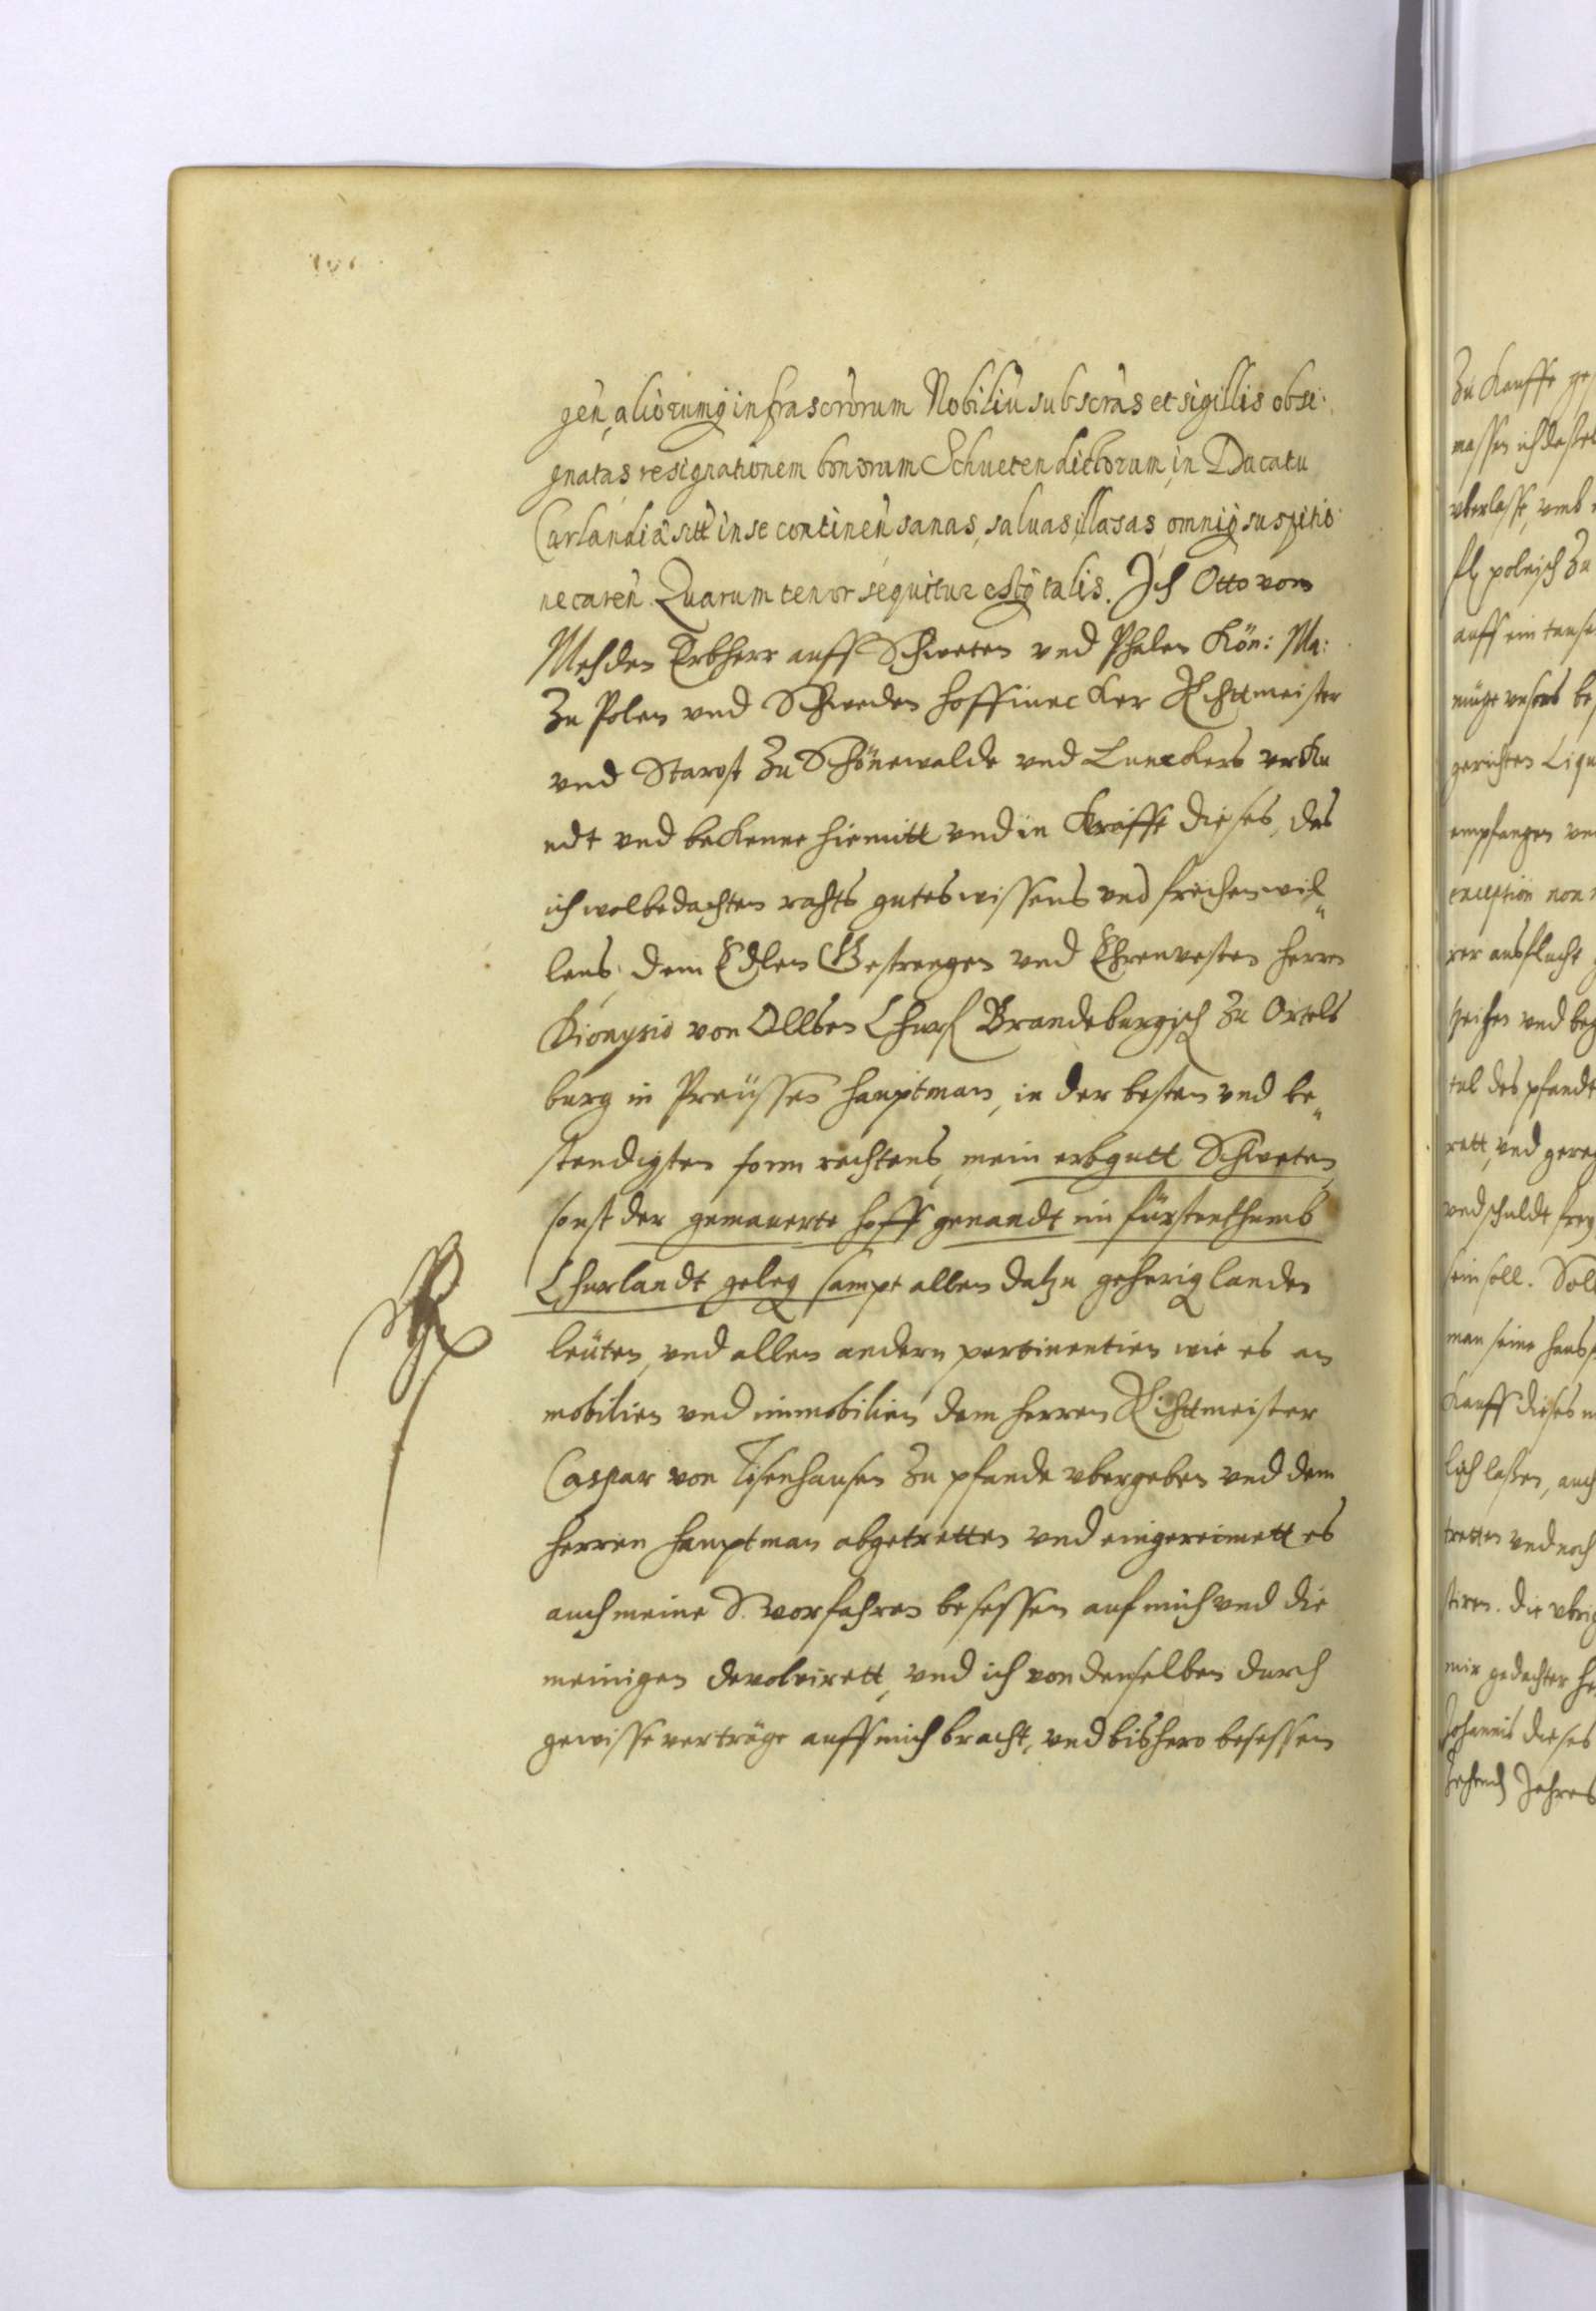 gen, aliorumq infrascrorum Nobiliu subscras et sigillis obsi:
gnatas resignationem bonorum Schueten dictorum, in Ducatu
Curlandiæ sitt in se continen sanas, saluas, illæsas, omniq suspitio
ne caren. Quarum tenor sequitur estq talis. Ich Otto von
Mehden Erbherr auff Schweten vnd Kön: Ma:
Zu Polen vnd Schweden Rihttmeister
vnd Starost Zu Schönewalde vnd vrku
ndt vnd bekenne hiemitt vnd in Kraffe dieses, das
ich wolbedachten rahts gutes wissens vnd freihen wil„
lens, dem Edlen Gestrengen vnd Ehrenvesten Herrn
Dionysio von Ollsen Churf Brandeburgisch Zu Ortels
burg in Preüssen Hauptman, in der besten vnd be„
stendigsten form rechtens, mein erbgutt Schweten
sonst der gemauerte hoff genandt im fürstenthumb
Churlandt geleg sampt allen datzu geherig landen
leüten, vnd allen andern pertinentien wie es an
mobilien vnd immobilien dem Herren Rihttmeister
Caspar von Tisenhausen Zu pfande vbergeben vnd dem
Herren Hauptman abgetretten vnd eingereimett es
auch meine S. vorfahren besessen auf mich vnd die
meinigen devolvirett, vnd ich von denselben durch
gewisse verträge auff mich bracht, vnd bishero besessen
Zu Kauffe ge
massen ich
vberlasse, vmb
fl polnisch Zu
auff ein
müge
gerichten Liqu
empfangen
exception non
rer ausflucht
vnd beg
des pfandt
rett, vnd
vnd schuldt frey
sein soll. Soll
man seine
Kauff dieses
lich lassen, auch
tretten vnd noch
stiren. Die vbrig
mir gedachter
Johannis dieses
Jahres